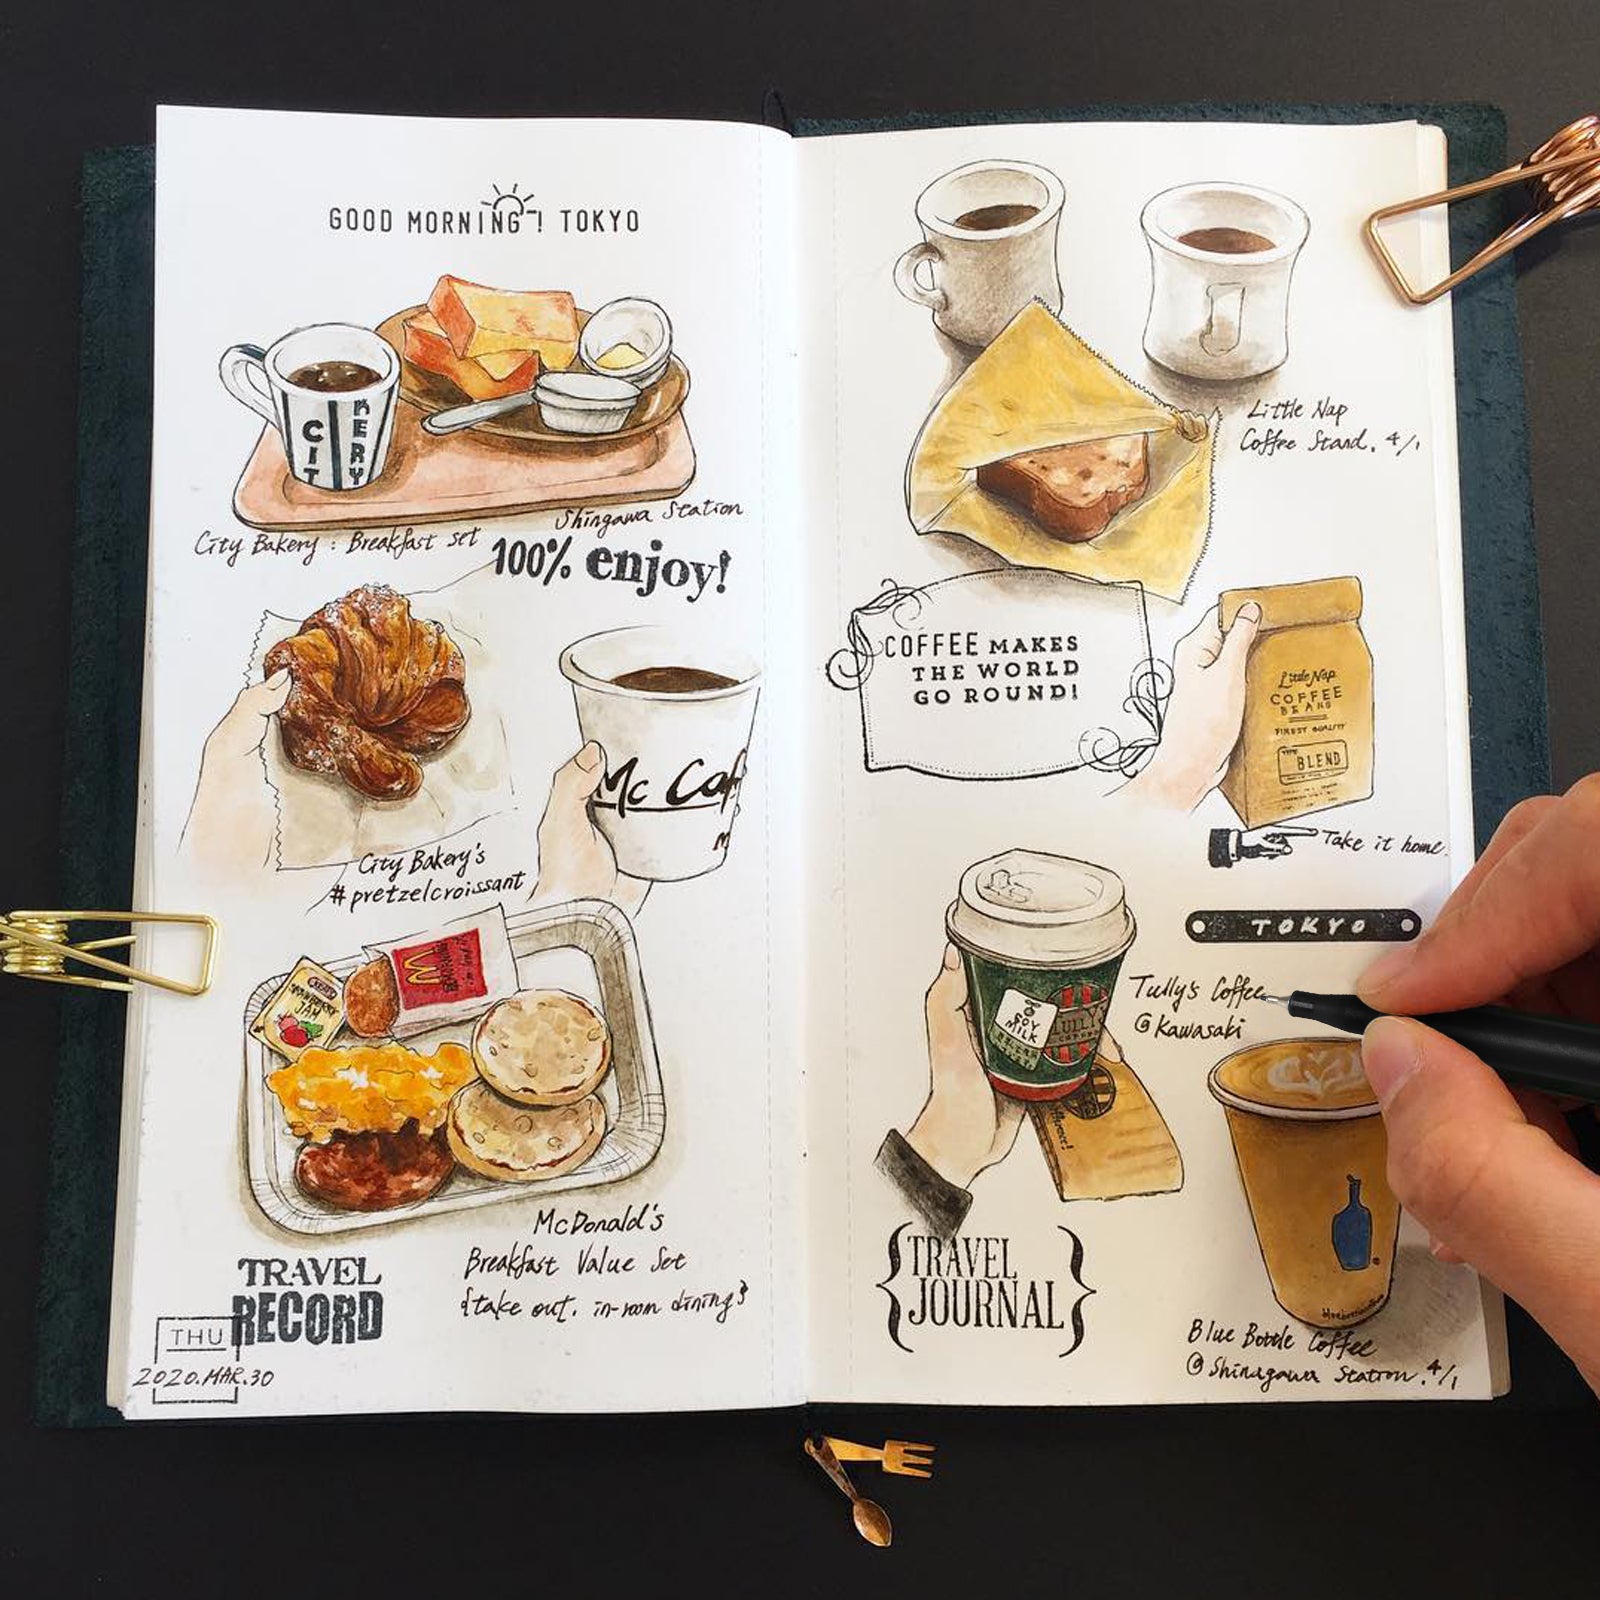 GOOD MORNING! TOKYO
CIT
KERY
Shingawa Station
City Bakery : Breakfast set
100% enjoy!
Mc Caf
m
City Bakery's
#pretzelcroissant
STRAWBERRY
JAM
McDonald's
Breakfast Value Set
{take out. in-room dining}
TRAVEL
RECORD
THU
2020.MAR.30
Little Nap
Coffee Stand. 4/1
COFFEE MAKES
THE WORLD
GO ROUND!
Little Nap
COFFEE
BEANS
FINEST QUALITY
BLEND
Take it home.
TOKYO
Tully's Coffee
@Kawasaki
SOY
MILK
TULLY'S
COFFEE
TRAVEL
JOURNAL
Blue Bottle Coffee
@Shinagawa Station. 4/1